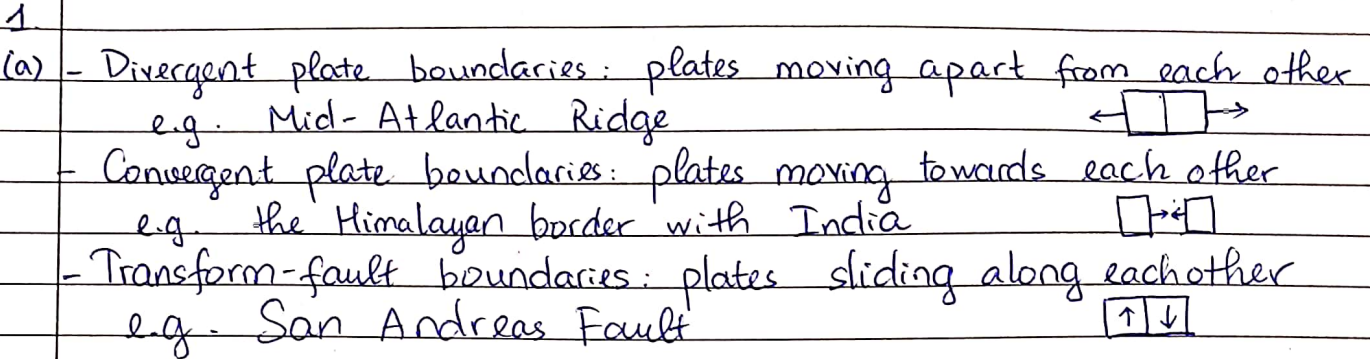 1.
(a) - Divergent plate boundaries: plates moving apart from each other
e.g. Mid-Atlantic Ridge
- Convergent plate boundaries: plates moving towards each other
e.g. the Himalayan border with India
- Transform-fault boundaries: plates sliding along each other
e.g. San Andreas Fault